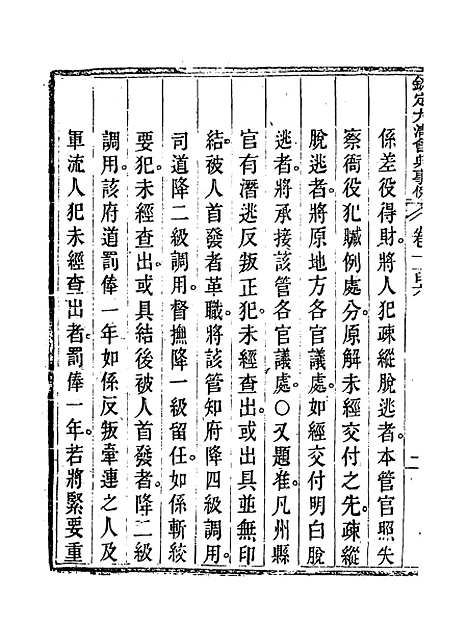 欽定大清會典事例 卷一百六 二
係差役得財。將人犯疎縱脫逃者。本管官照失
察衙役犯贓例處分。原解未經交付之先。疎縱
脫逃者。將原地方各官議處。如經交付明白脫
逃者。將承接該管各官議處。○又題准。凡州縣
官有潛逃反叛正犯。未經查出。或出具並無印
結。被人首發者革職。將該管知府降四級調用。
司道降二級調用。督撫降一級留任。如係斬絞
要犯。未經查出。或具結後被人首發者。降二級
調用。該府道罰俸一年。如係反叛牽連之人及
軍流人犯未經查出者。罰俸一年。若將緊要重